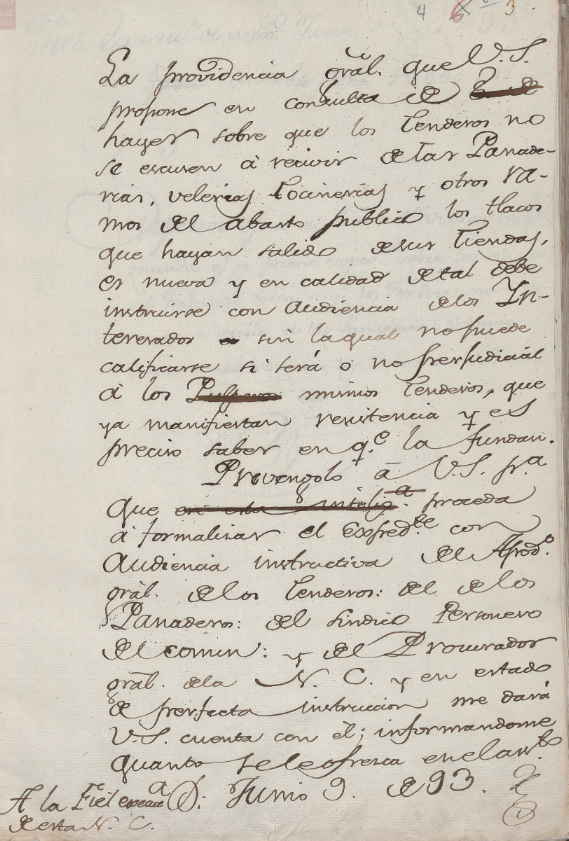 4 6 3.
La providencia gral. que V.S.
propone en consulta de
hayer sobre que los tenderos no
se escusen â recivir de las Panade-
rias, velerias, tocinerias y otros ra-
mos del abasto publico los tlacos
que hayan salido de sus tiendas,
es nueva y en calidad de tal debe
instruirse con Audiencia de los In-
teresados sin la qual no puede
calificarse si será ó no perjudicial
â los Pulperos mismos tenderos, que
ya manifiestan resistencia y es
preciso saber en q.e la fundan.
Prevengolo â V.S. pra
que en esta intelig.a proceda
â formalizar el Expred.te con
Audiencia instructiva del Apod.o
gral. de los tenderos: del de los
Panaderos: del sindico Personero
del comun: y del Procurador
gral. de la N. C. y en estado
de perfecta instruccion me dará
V.S. cuenta con él; informandome
quanto se le ofresca en el as.to
D. Junio 9. de 93.
A la Fiel
de esta N. C.